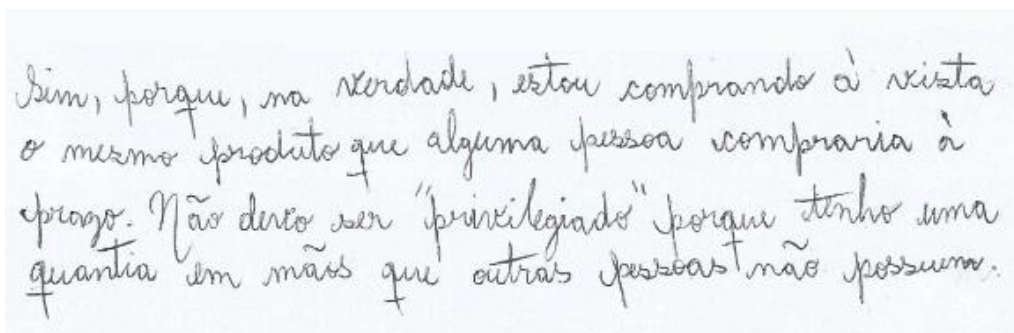 Sim, porque, na verdade, estou comprando à vista
o mesmo produto que alguma pessoa compraria à
prazo. Não devo ser "privilegiado" porque tenho uma
quantia em mãos que outras pessoas não possuem.